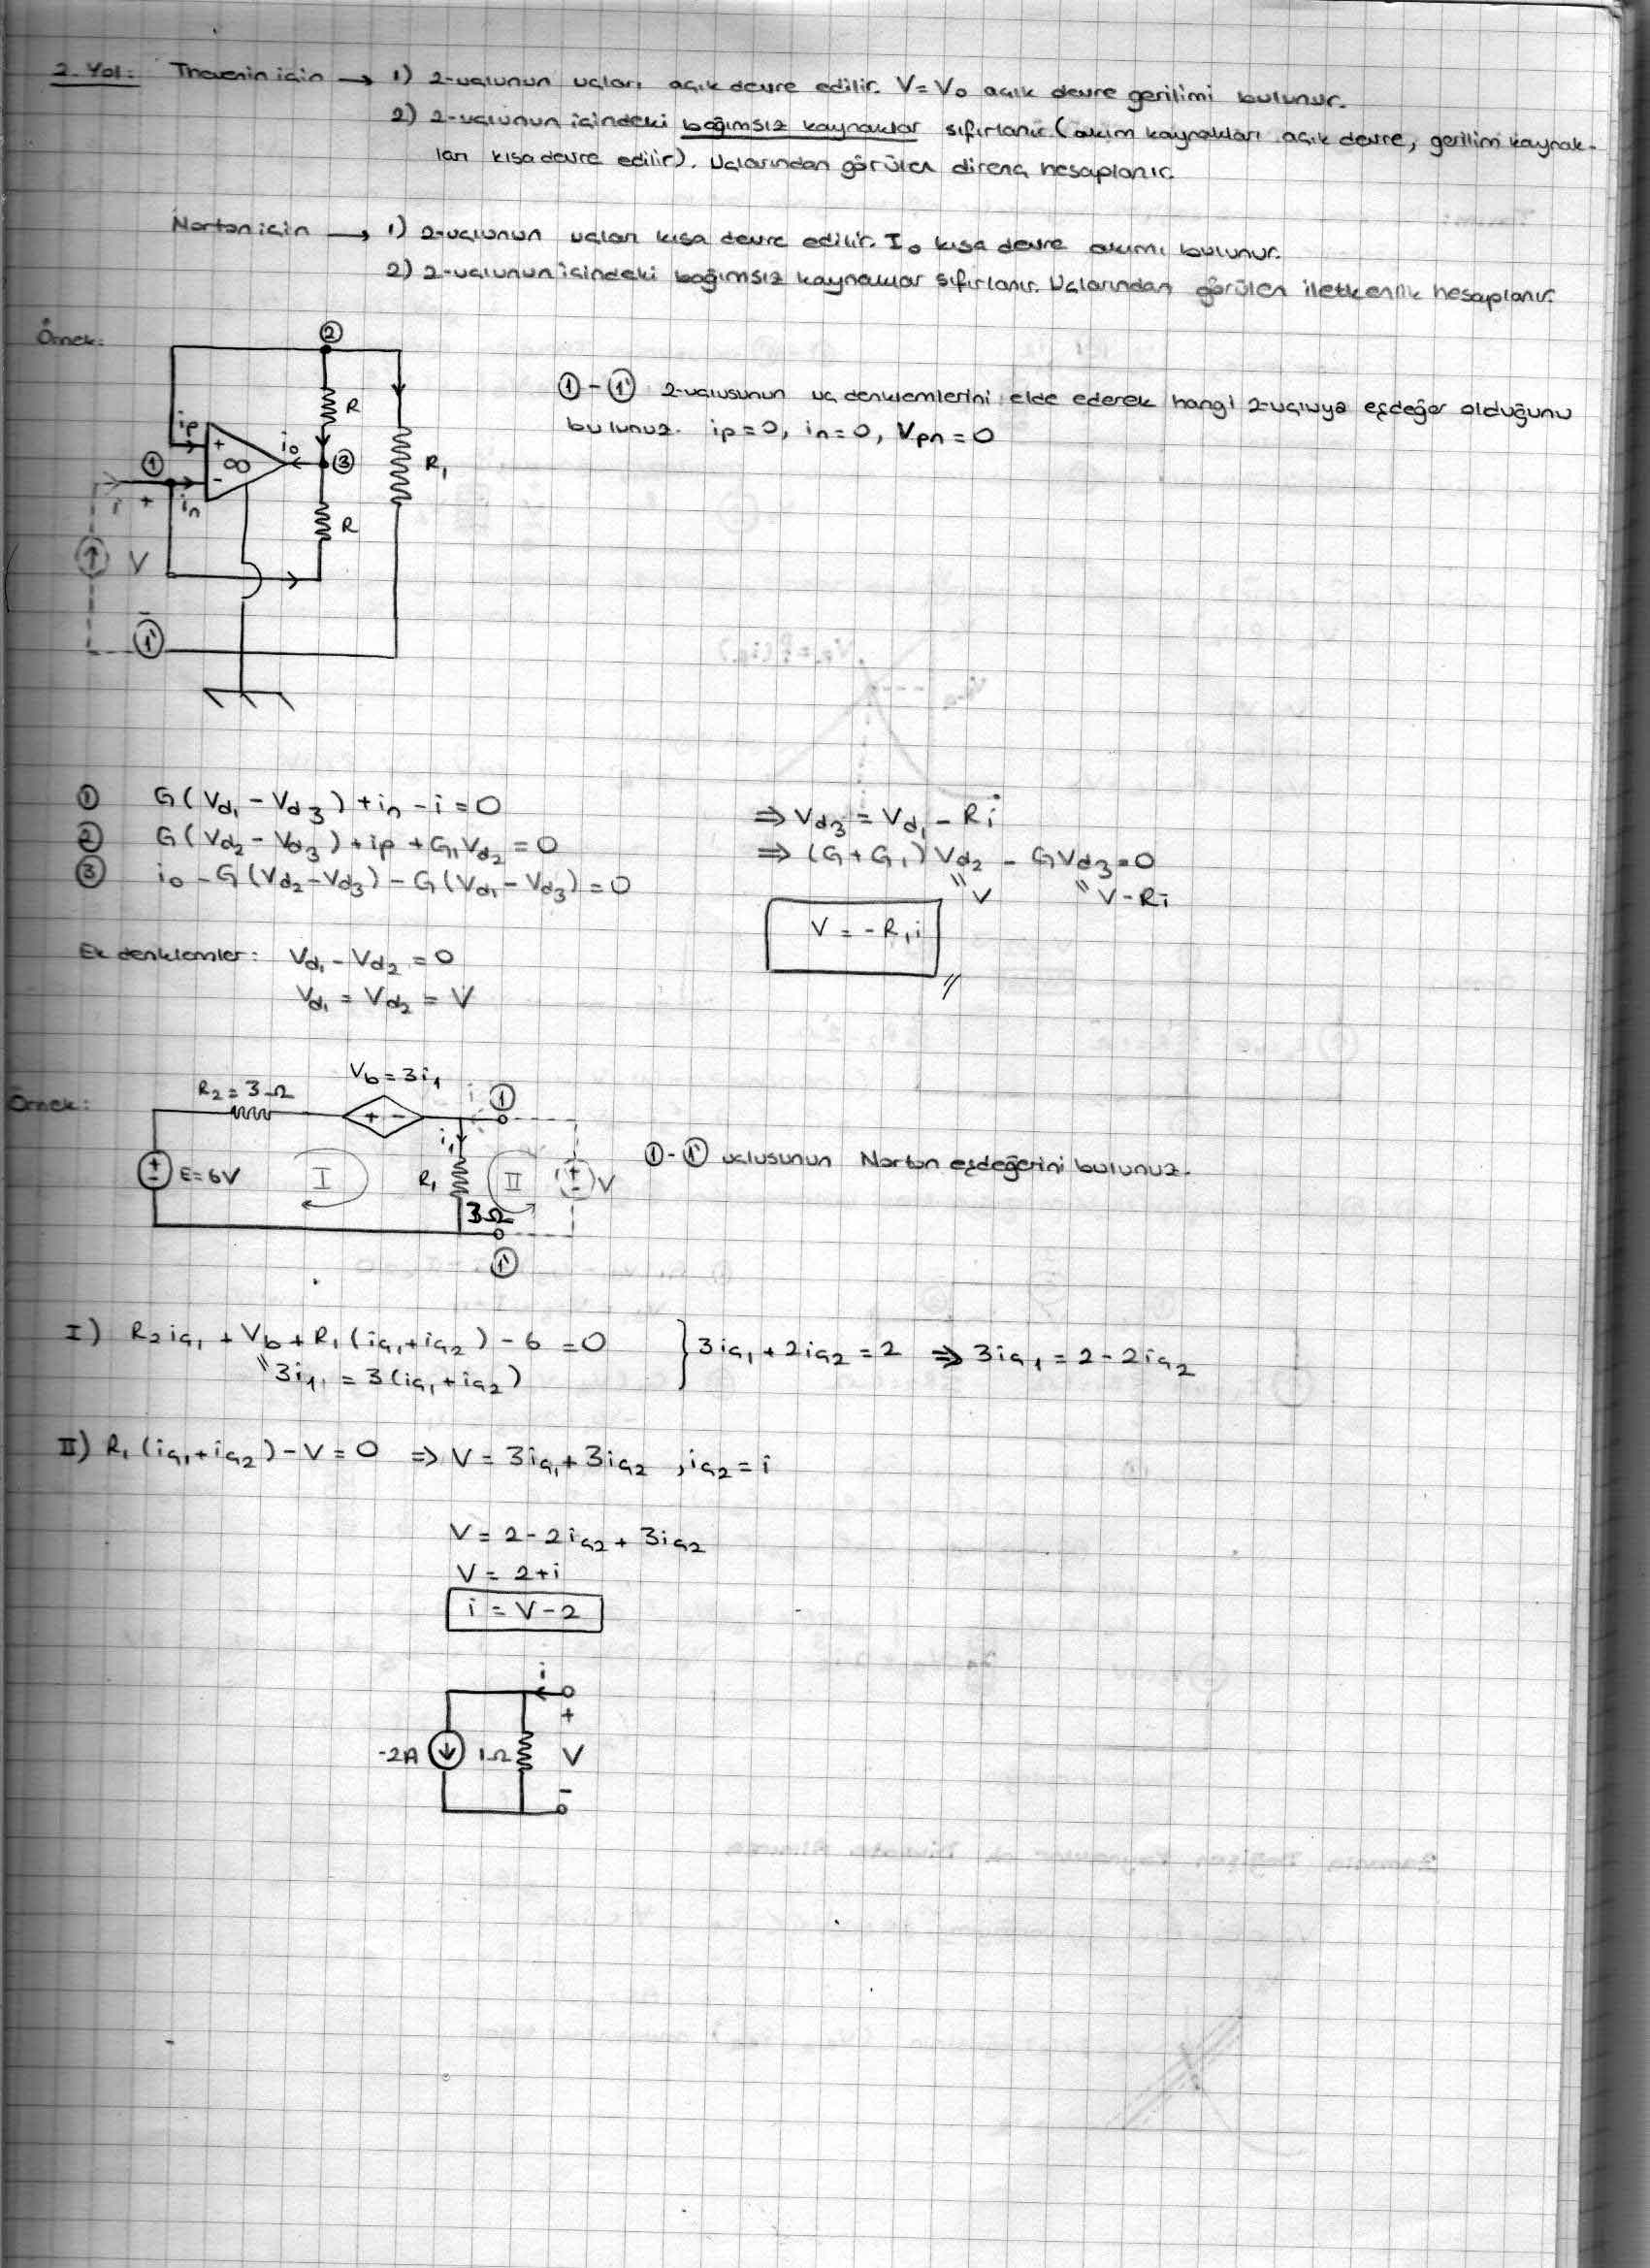 2. Yol: Thevenin için → 1) 2-uçlunun uçları açık devre edilir. V=V₀ açık devre gerilimi bulunur.
2) 2-uçlunun içindeki bağımsız kaynaklar sıfırlanır (akım kaynakları açık devre, gerilim kaynak-
ları kısa devre edilir). Uçlarından görülen direnç hesaplanır.
Norton için → 1) 2-uçlunun uçları kısa devre edilir. I₀ kısa devre akımı bulunur.
2) 2-uçlunun içindeki bağımsız kaynaklar sıfırlanır. Uçlarından görülen iletkenlik hesaplanır.
Örnek:
②
R
ip
+
i₀
∞
③
R₁
①
-
i
+
in
R
V
-
①'
①-①' 2-uçlusunun uç denklemlerini elde ederek hangi 2-uçluya eşdeğer olduğunu
bulunuz. ip=0, in=0, Vpn=0
① G(Vd₁ - Vd₃) + in - i = 0
② G(Vd₂ - Vd₃) + ip + G₁Vd₂ = 0
③ i₀ - G(Vd₂-Vd₃) - G(Vd₁-Vd₃) = 0
⇒ Vd₃ = Vd₁ - Ri
⇒ (G+G₁)Vd₂ - GVd₃ = 0
" V " V-Ri
V = -R₁i //
Ek denklemler: Vd₁ - Vd₂ = 0
Vd₁ = Vd₂ = V
Örnek:
R₂=3Ω
Vb=3i₁
+ -
i
①
i₁
+
-
E=6V
I
R₁
3Ω
II
+
-
V
①'
①-①' uçlusunun Norton eşdeğerini bulunuz.
I) R₂iç₁ + Vb + R₁(iç₁+iç₂) - 6 = 0
" 3i₁ = 3(iç₁+iç₂)
} 3iç₁ + 2iç₂ = 2 ⇒ 3iç₁ = 2 - 2iç₂
II) R₁(iç₁+iç₂) - V = 0 ⇒ V = 3iç₁ + 3iç₂, iç₂ = i
V = 2 - 2iç₂ + 3iç₂
V = 2+i
i = V-2
i
+
-2A
1Ω
V
-